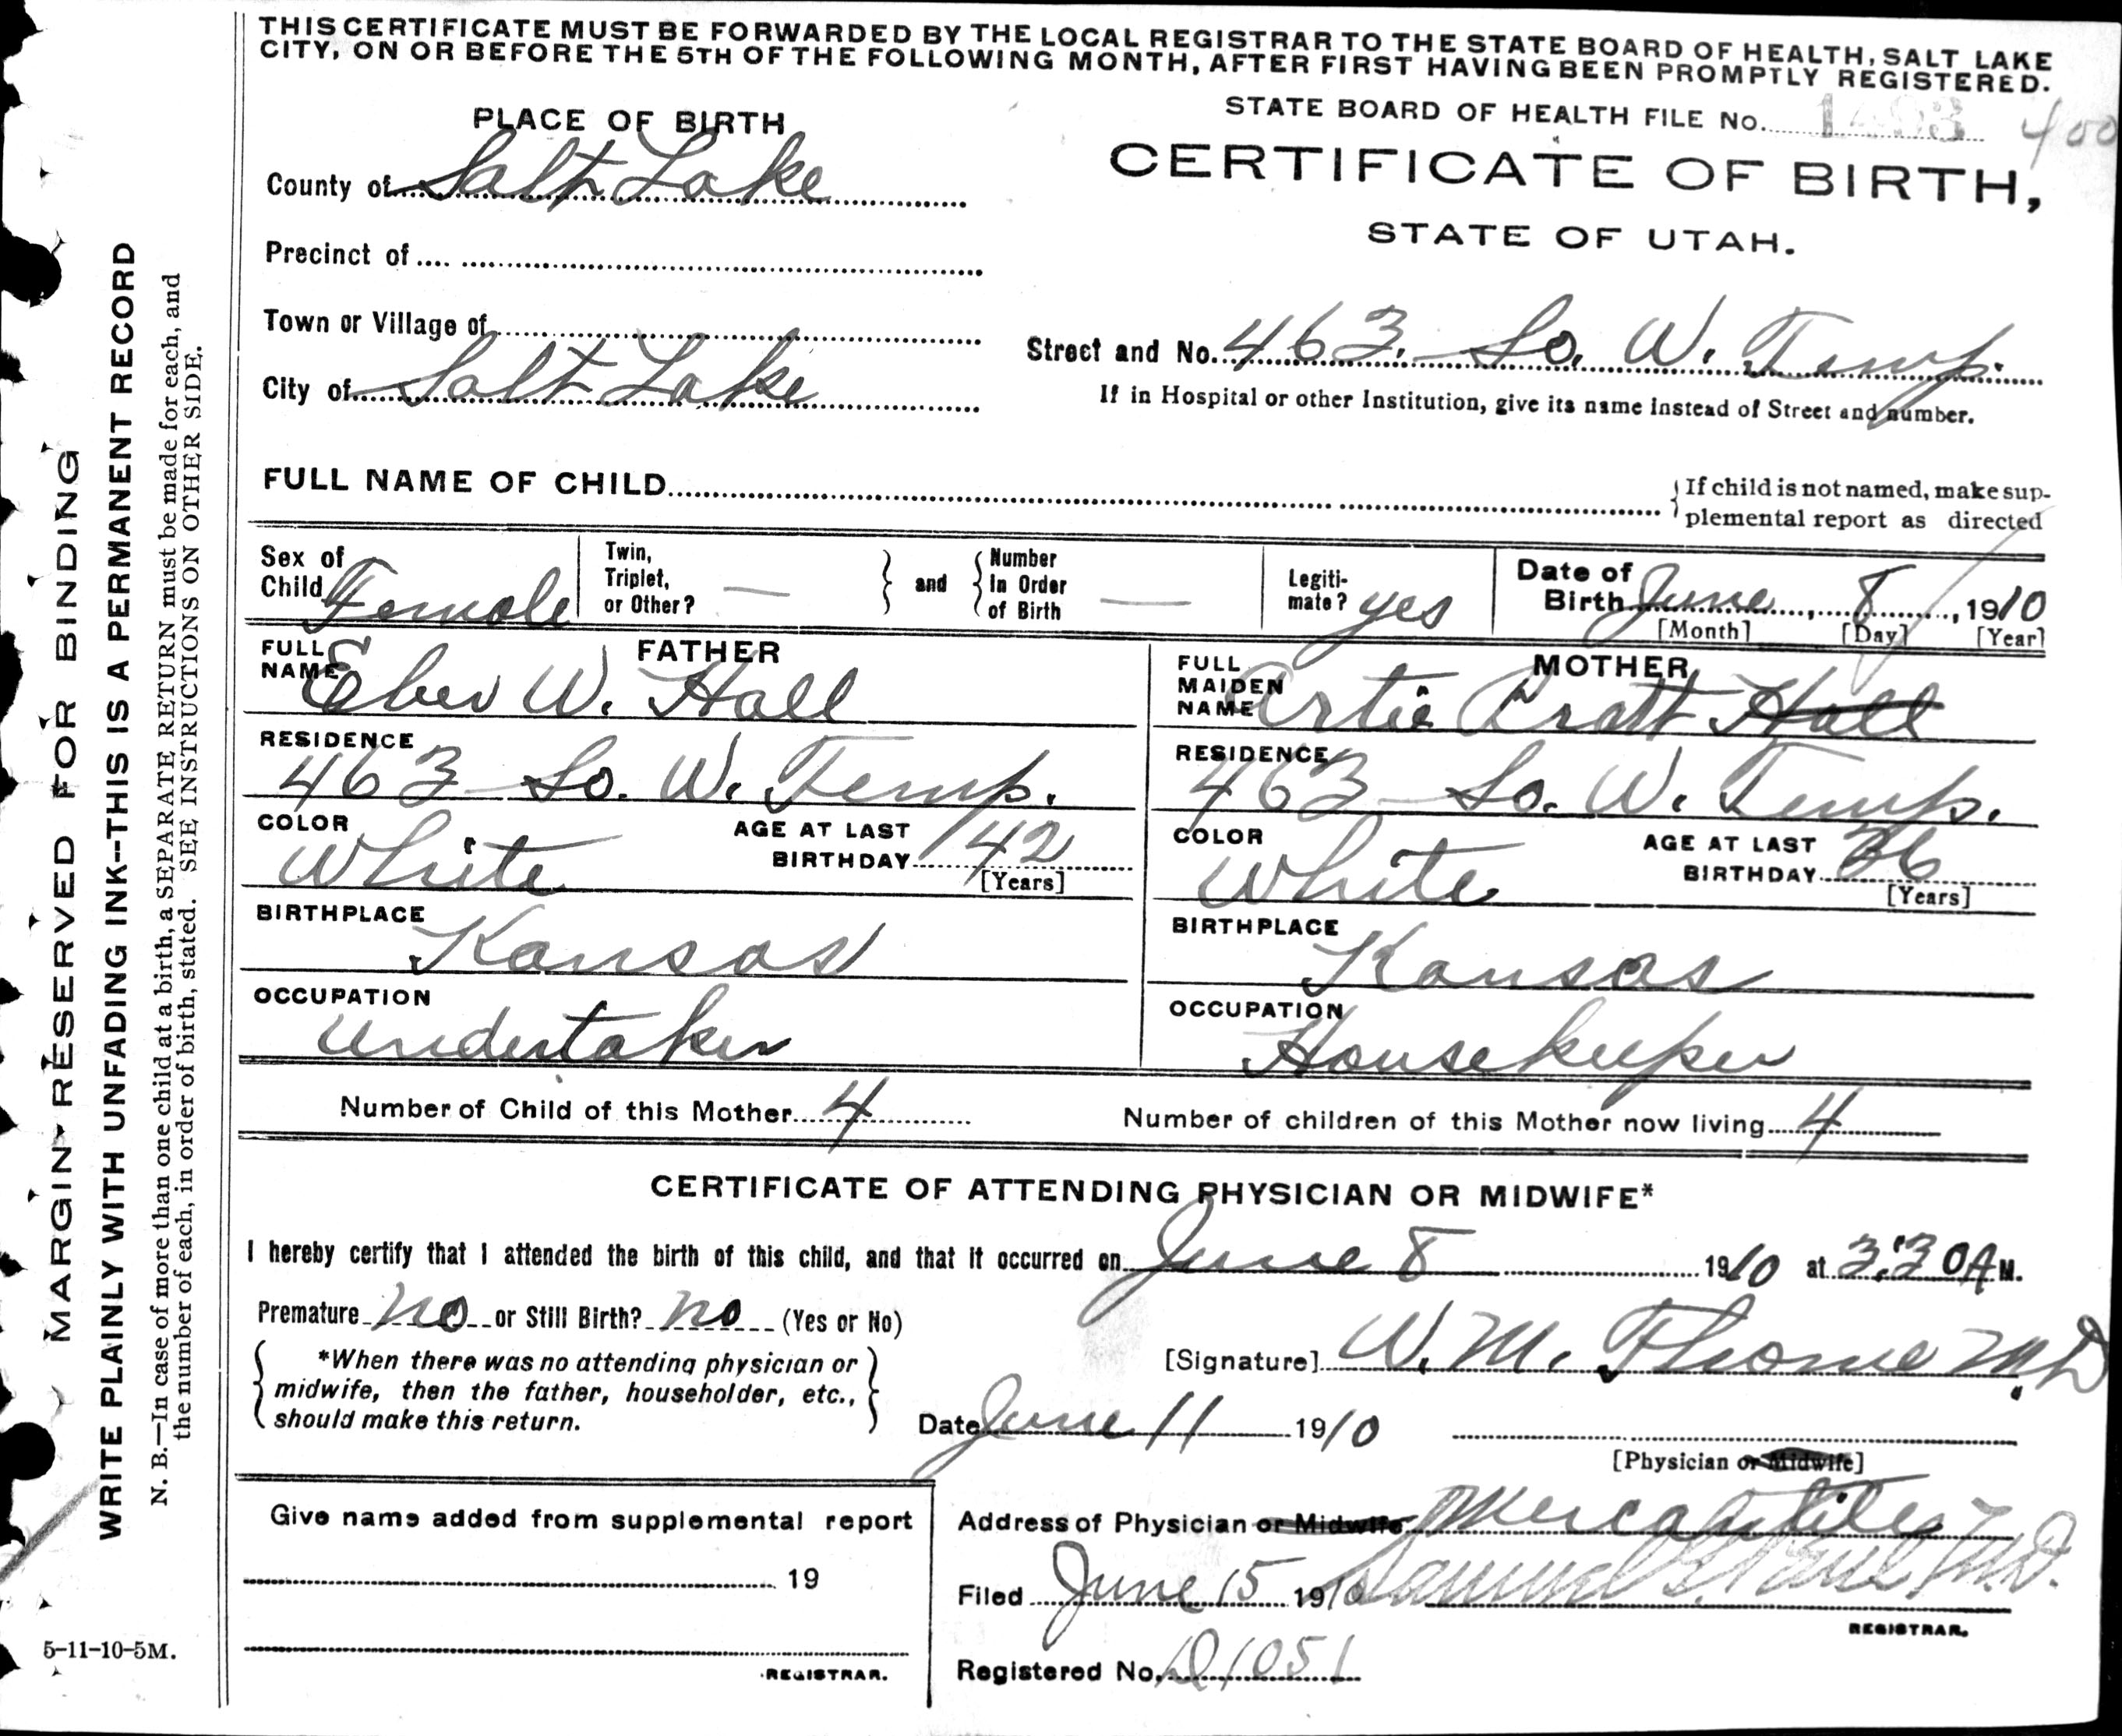 THIS CERTIFICATE MUST BE FORWARDED BY THE LOCAL REGISTRAR TO THE STATE BOARD OF HEALTH, SALT LAKE
CITY, ON OR BEFORE THE 5TH OF THE FOLLOWING MONTH, AFTER FIRST HAVING BEEN PROMPTLY REGISTERED.
STATE BOARD OF HEALTH FILE No. 400
CERTIFICATE OF BIRTH,
STATE OF UTAH.
PLACE OF BIRTH
County of Salt Lake
Precinct of
Town or Village of
City of Salt Lake
Street and No. 463 So. W. Temp.
If in Hospital or other Institution, give its name instead of Street and number.
FULL NAME OF CHILD
If child is not named, make sup-
plemental report as directed
Sex of Child Female
Twin, Triplet, or Other? —
and
Number in Order of Birth —
Legiti-mate? yes
Date of Birth June 8, 1910
[Month] [Day] [Year]
FATHER
FULL NAME Eber W. Hall
RESIDENCE
463 So. W. Temp.
COLOR White
AGE AT LAST BIRTHDAY 42
[Years]
BIRTHPLACE
Kansas
OCCUPATION
Undertaker
MOTHER
FULL MAIDEN NAME Artie Pratt Hall
RESIDENCE
463 So. W. Temp.
COLOR White
AGE AT LAST BIRTHDAY 36
[Years]
BIRTHPLACE
Kansas
OCCUPATION
Housekeeper
Number of Child of this Mother 4
Number of children of this Mother now living 4
CERTIFICATE OF ATTENDING PHYSICIAN OR MIDWIFE*
I hereby certify that I attended the birth of this child, and that it occurred on June 8 1910 at 3:30 A M.
Premature no or Still Birth? no (Yes or No)
*When there was no attending physician or
midwife, then the father, householder, etc.,
should make this return.
[Signature] W. M. Thome MD
Date June 11 1910
[Physician or Midwife]
Give name added from supplemental report
19
REGISTRAR.
Address of Physician or Midwife Mercantile
Filed June 15 1910 Samuel G. Paul M.D.
REGISTRAR.
Registered No. D1051
MARGIN RESERVED FOR BINDING
WRITE PLAINLY WITH UNFADING INK--THIS IS A PERMANENT RECORD
N. B.—In case of more than one child at a birth, a SEPARATE RETURN must be made for each, and
the number of each, in order of birth, stated. SEE INSTRUCTIONS ON OTHER SIDE.
5-11-10-5M.